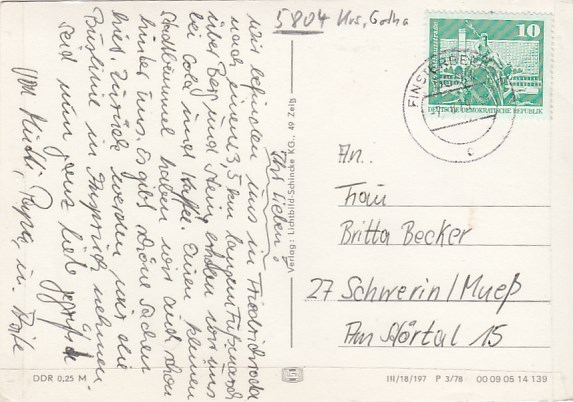 5804 Krs. Gotha
10
DEUTSCHE DEMOKRATISCHE REPUBLIK
FINSTERBERGEN
Ihr Lieben!
wir befinden uns in Friedrichroda
nach einem 3,5 km langem Fußmarsch
über Berg und Stein erholen wir uns
bei Cola und Kaffee. Einen kleinen
Stadtbummel haben wir auch schon
hinter uns. Es gibt schöne Sachen
hier. Zurück werden wir die
Buslinie in Anspruch nehmen.
Seid nun ganz lieb gegrüßt
von Papa
Verlag: Lichtbild-Schincke KG., 49 Zeitz
An.
Frau
Britta Becker
27 Schwerin/Mueß
Am
15
DDR 0,25 M
III/18/197 P 3/78 00 09 05 14 139